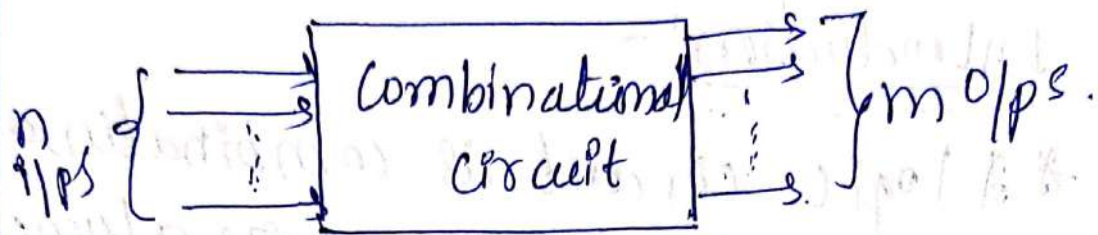 n
i/ps
Combinational
circuit
m O/ps.